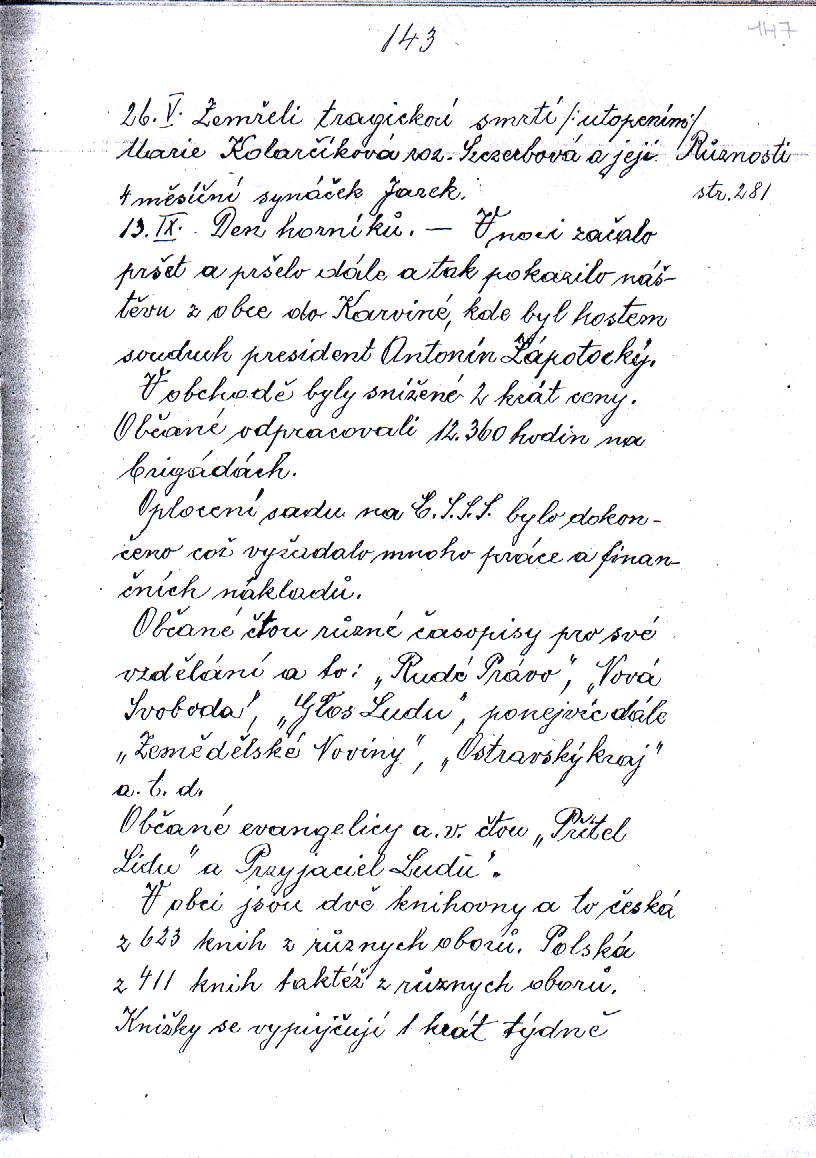 143
147
26. V. Zemřeli tragickou smrtí /:utopením:/
Marie Kolarčíková roz. Szczerbová a její
Různosti
4 měsíční synáček Jarek.
str. 281
13. IX. Den horníků. — V noci začalo
pršet a pršelo dále a tak pokazilo náš-
těvu z obce do Karviné, kde byl hostem
soudruh president Antonín Zápotocký.
V obchodě byly snížené 2 krát ceny.
Občané odpracovali 12.360 hodin na
brigádách.
Oplocení sadu na Č.S.S.S. bylo dokon-
čeno což vyžadalo mnoho práce a finan-
čních nákladů.
Občané čtou různé časopisy pro své
vzdělání a to: „Rudé Právo", „Nová
Svoboda", „Głos Ludu", ponejvíc dále
„Zemědělské Noviny", „Ostravský kraj"
a. t. d.
Občané evangelicy a. v. čtou „Přítel
Lidu" a Przyjaciel Ludu".
V obci jsou dvě knihovny a to česká
z 623 knih z různych oborů. Polská
z 411 knih taktéž z různych oborů.
Knižky se vypůjčují 1 krát týdně